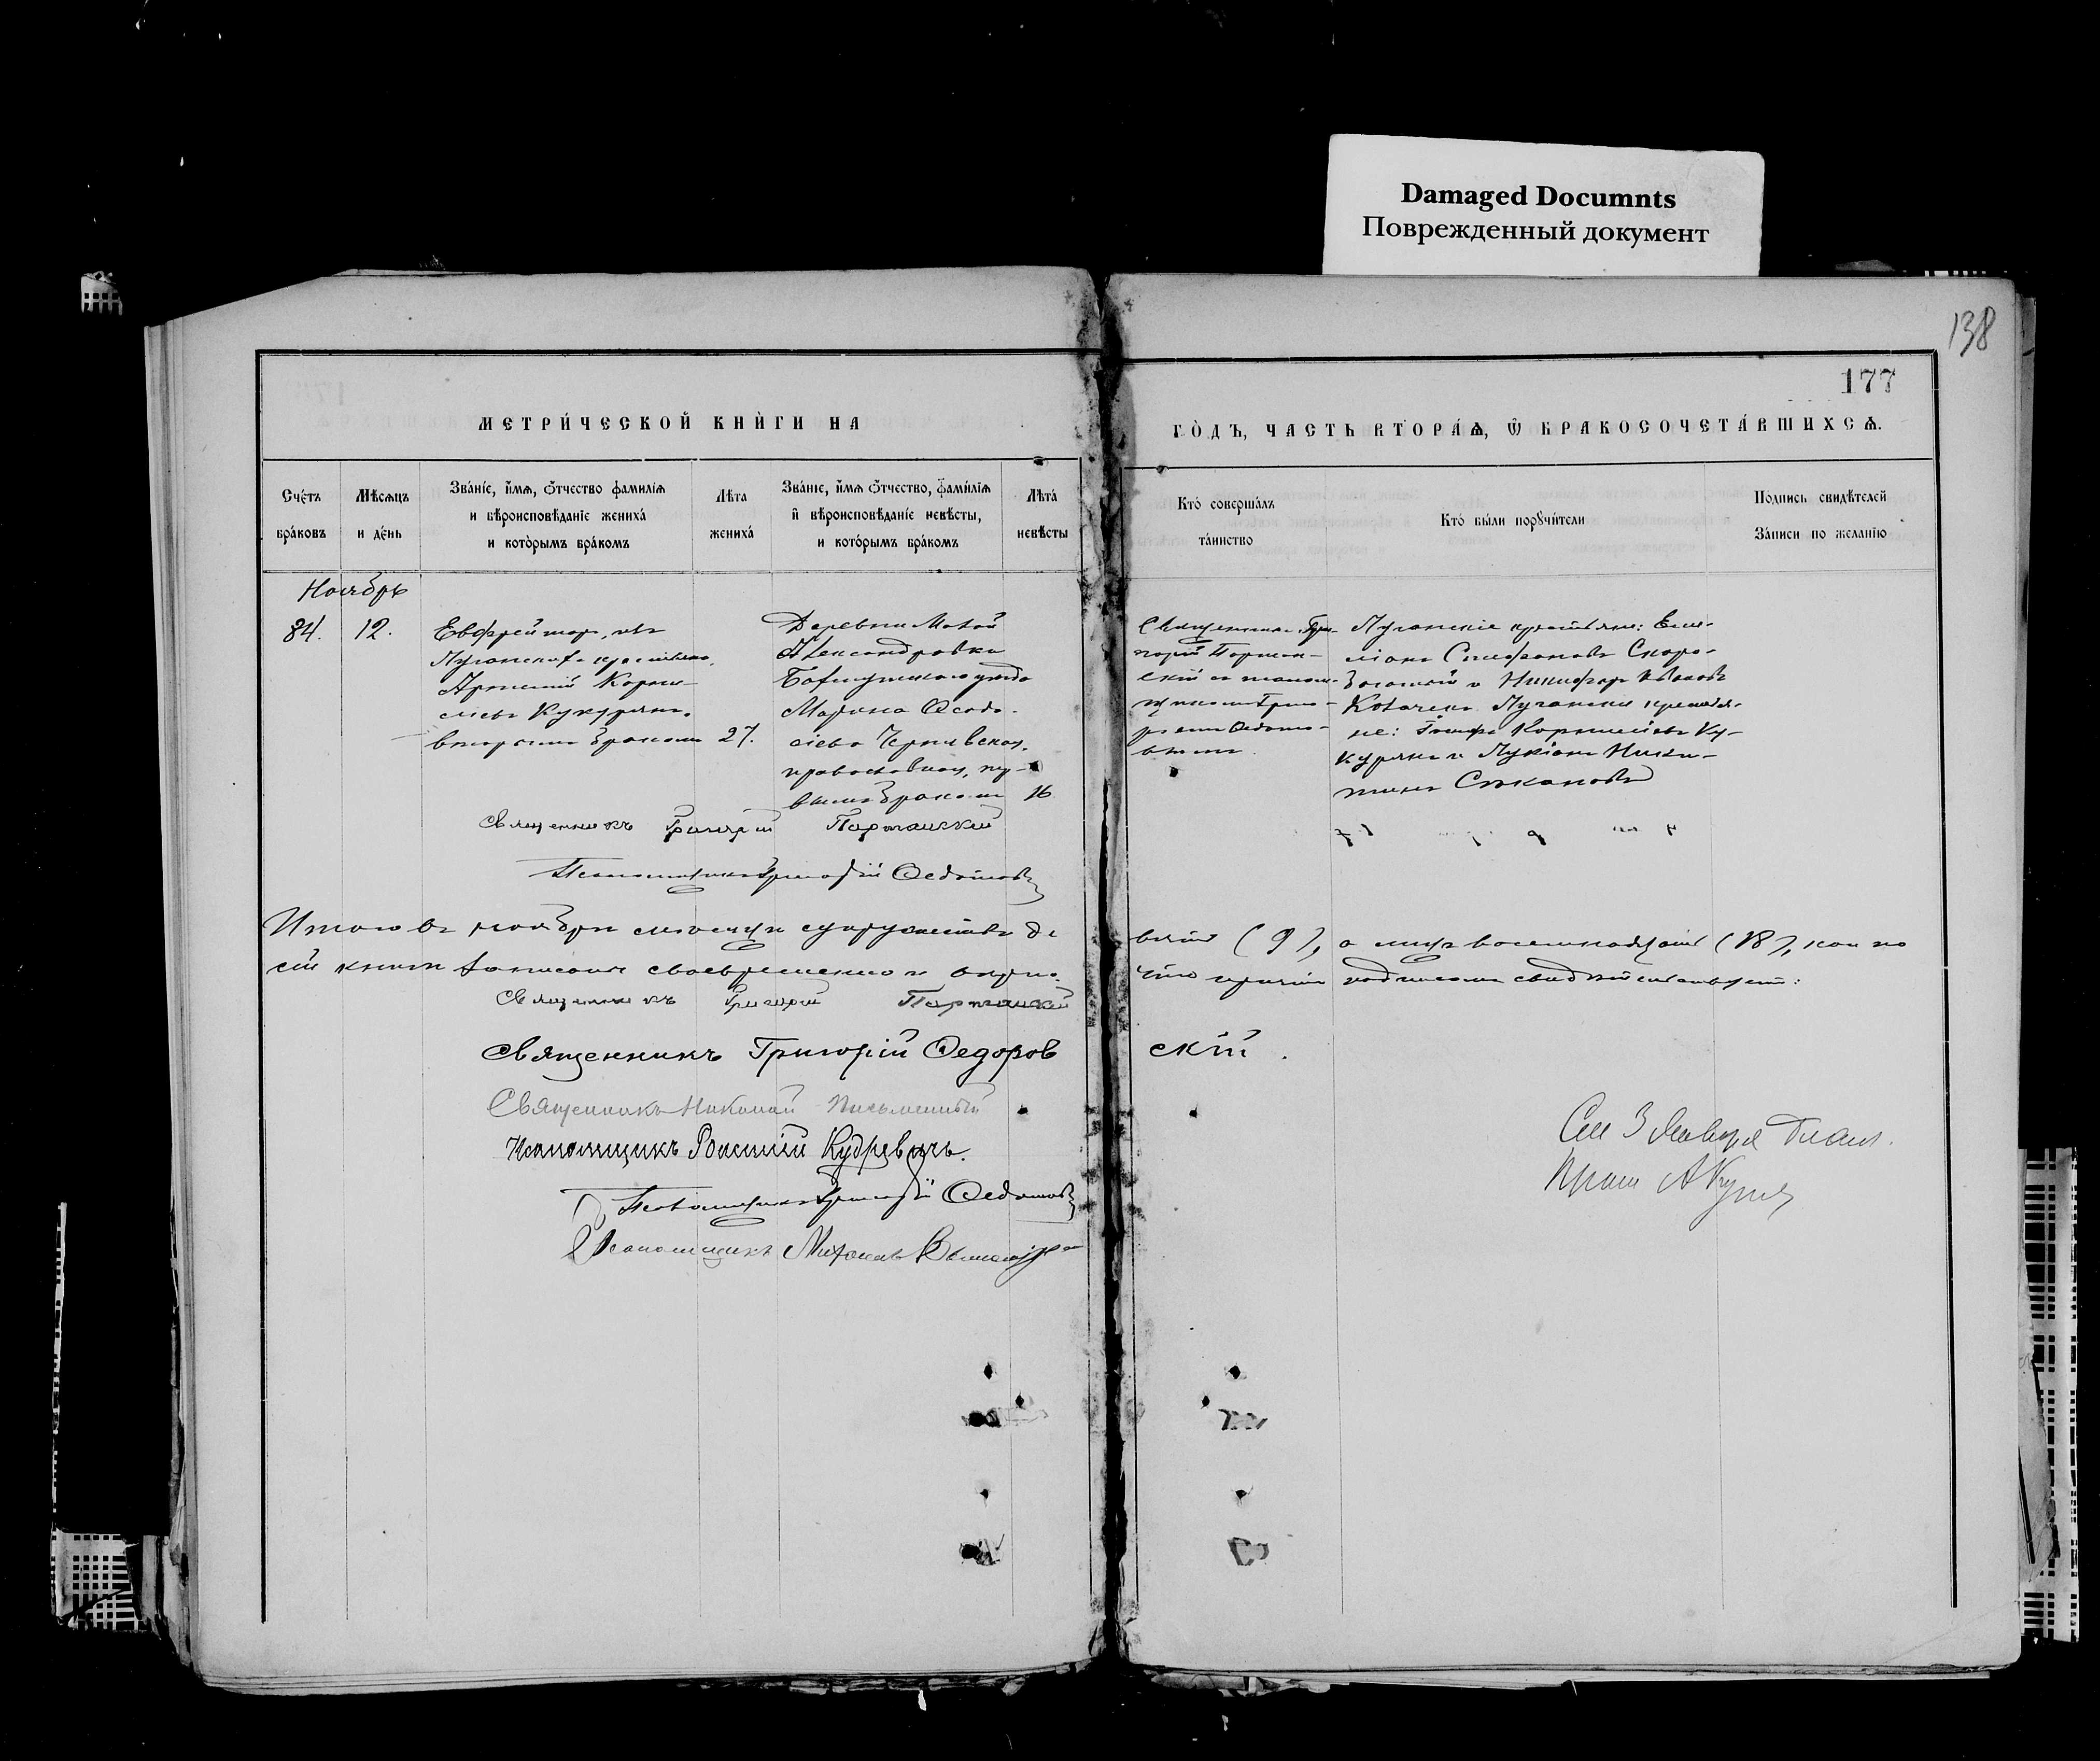 Damaged Documnts
Поврежденный документ
138
177
МЕТРИ́ЧЕСКОЙ КНИ́ГИ НА
ГО́ДЪ, ЧАСТЬ ВТОРА́Ѧ, Ѿ БРАКОСОЧЕТА́ВШИХСѦ.
Сче́тъ
бра́ковъ
Мѣсѧцъ
и де́нь
Зва́нїе, и҆́мѧ, ѻ҆́тчество фамилїѧ
и вѣроисповѣ́данїе жениха́
и кото́рымъ бра́комъ
Лѣта
жениха́
Зва́нїе, и҆́мѧ ѻ҆́тчество, фами́лїѧ
и҆ вѣроисповѣ́данїе невѣ́сты,
и кото́рымъ бра́комъ
Лѣта́
невѣ́сты
Кто́ соверша́лъ
та́инство
Кто́ бы́ли порꙋчи́тели
Подпись свидѣ́телей
За́писи по жела́нїю
Ноябрь
84.
12.
Евфрейторъ, изъ
Луганскаго крестьянъ,
Арсеній Корни-
ліевъ Кукурякъ.
вторымъ бракомъ
27.
Деревни
Александровки
Бахмутскаго уѣзда
Марина Ѳеодо-
сіева Чернявская,
православная, пер-
вымъ бракомъ
16
Священникъ Гри-
горій Портан-
скій съ псалом-
щикомъ Григо-
ріемъ Ѳедото-
вымъ
Луганскіе крестьяне: Еми-
ліанъ Стефановъ Скоро-
богатый и Никифоръ Ивановъ
Луганскіе крестья-
не: Іосифъ Корниліевъ Ку-
курякъ и Лукіанъ Ники-
тинъ Стакановъ
Священникъ Григорій Портанскій
Псаломщикъ Григорій Ѳедотовъ
Итого въ ноябрѣ мѣсяцѣ супружествъ де-
вять (9), а лицъ восемнадцать (18),
сіи книги записаны своевременно и вѣрно.
причтъ подписомъ свидѣтельствуетъ:
Священникъ Григорій Портанскій
Священникъ Григорій Ѳедоровскій.
Священникъ Николай Письменный
Псаломщикъ Кудревичъ.
Псаломщикъ Григорій Ѳедотовъ
Псаломщикъ Михаилъ